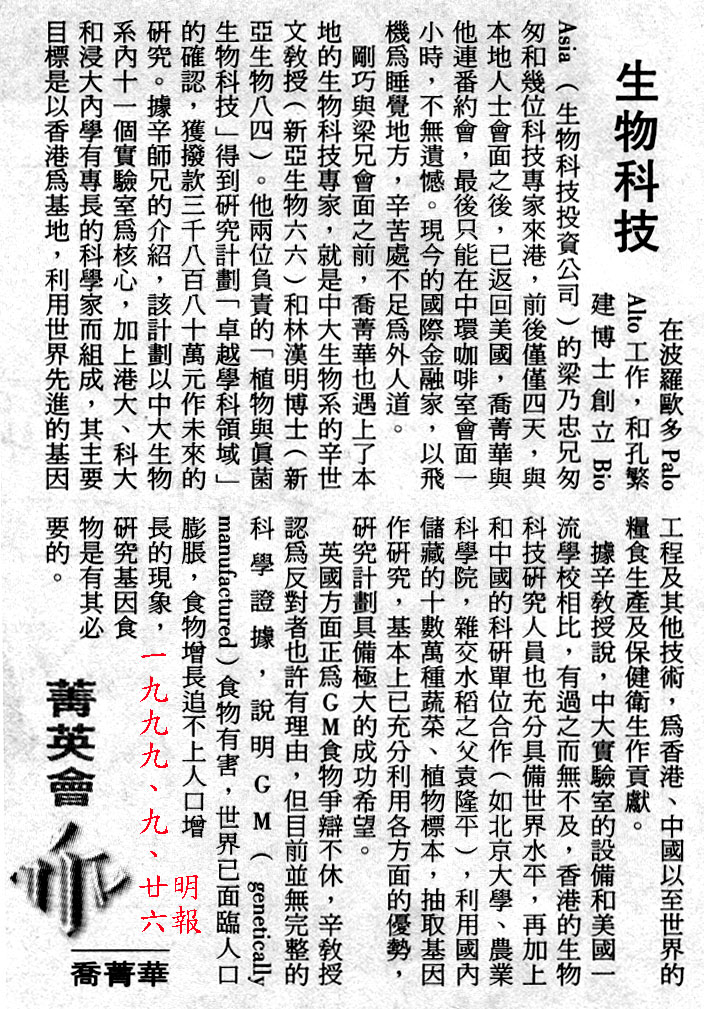 生物科技
在波羅歐多 Palo
Alto 工作，和孔繁
建博士創立 Bio
Asia（生物科技投資公司）的梁乃忠兄匆
匆和幾位科技專家來港，前後僅僅四天，與
本地人士會面之後，已返回美國，喬菁華與
他連番約會，最後只能在中環咖啡室會面一
小時，不無遺憾。現今的國際金融家，以飛
機爲睡覺地方，辛苦處不足爲外人道。
剛巧與梁兄會面之前，喬菁華也遇上了本
地的生物科技專家，就是中大生物系的辛世
文教授（新亞生物六六）和林漢明博士（新
亞生物八四）。他兩位負責的「植物與眞菌
生物科技」得到硏究計劃「卓越學科領域」
的確認，獲撥款三千八百八十萬元作未來的
硏究。據辛師兄的介紹，該計劃以中大生物
系內十一個實驗室爲核心，加上港大、科大
和浸大內學有專長的科學家而組成，其主要
目標是以香港爲基地，利用世界先進的基因
工程及其他技術，爲香港、中國以至世界的
糧食生產及保健衛生作貢獻。
據辛教授說，中大實驗室的設備和美國一
流學校相比，有過之而無不及，香港的生物
科技硏究人員也充分具備世界水平，再加上
和中國的科硏單位合作（如北京大學、農業
科學院，雜交水稻之父袁隆平），利用國內
儲藏的十數萬種蔬菜、植物標本，抽取基因
作硏究，基本上已充分利用各方面的優勢，
硏究計劃具備極大的成功希望。
英國方面正爲GM食物爭辯不休，辛教授
認爲反對者也許有理由，但目前並無完整的
科學證據，說明GM（genetically
manufactured）食物有害，世界已面臨人口
膨脹，食物增長追不上人口增
長的現象，
硏究基因食
物是有其必
要的。
一九九九、九、廿六
明報
菁英會
喬菁華